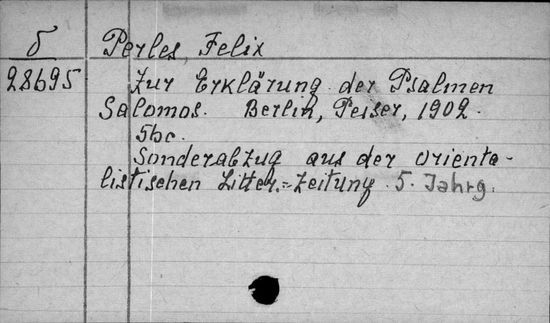 δ Perles, Felix
28695 Zur Erklärung der Psalmen
Salomos. Berlin, Peiser, 1902.
56c.
Sonderabzug aus der Orienta-
listischen Litter.=Zeitung. 5. Jahrg.